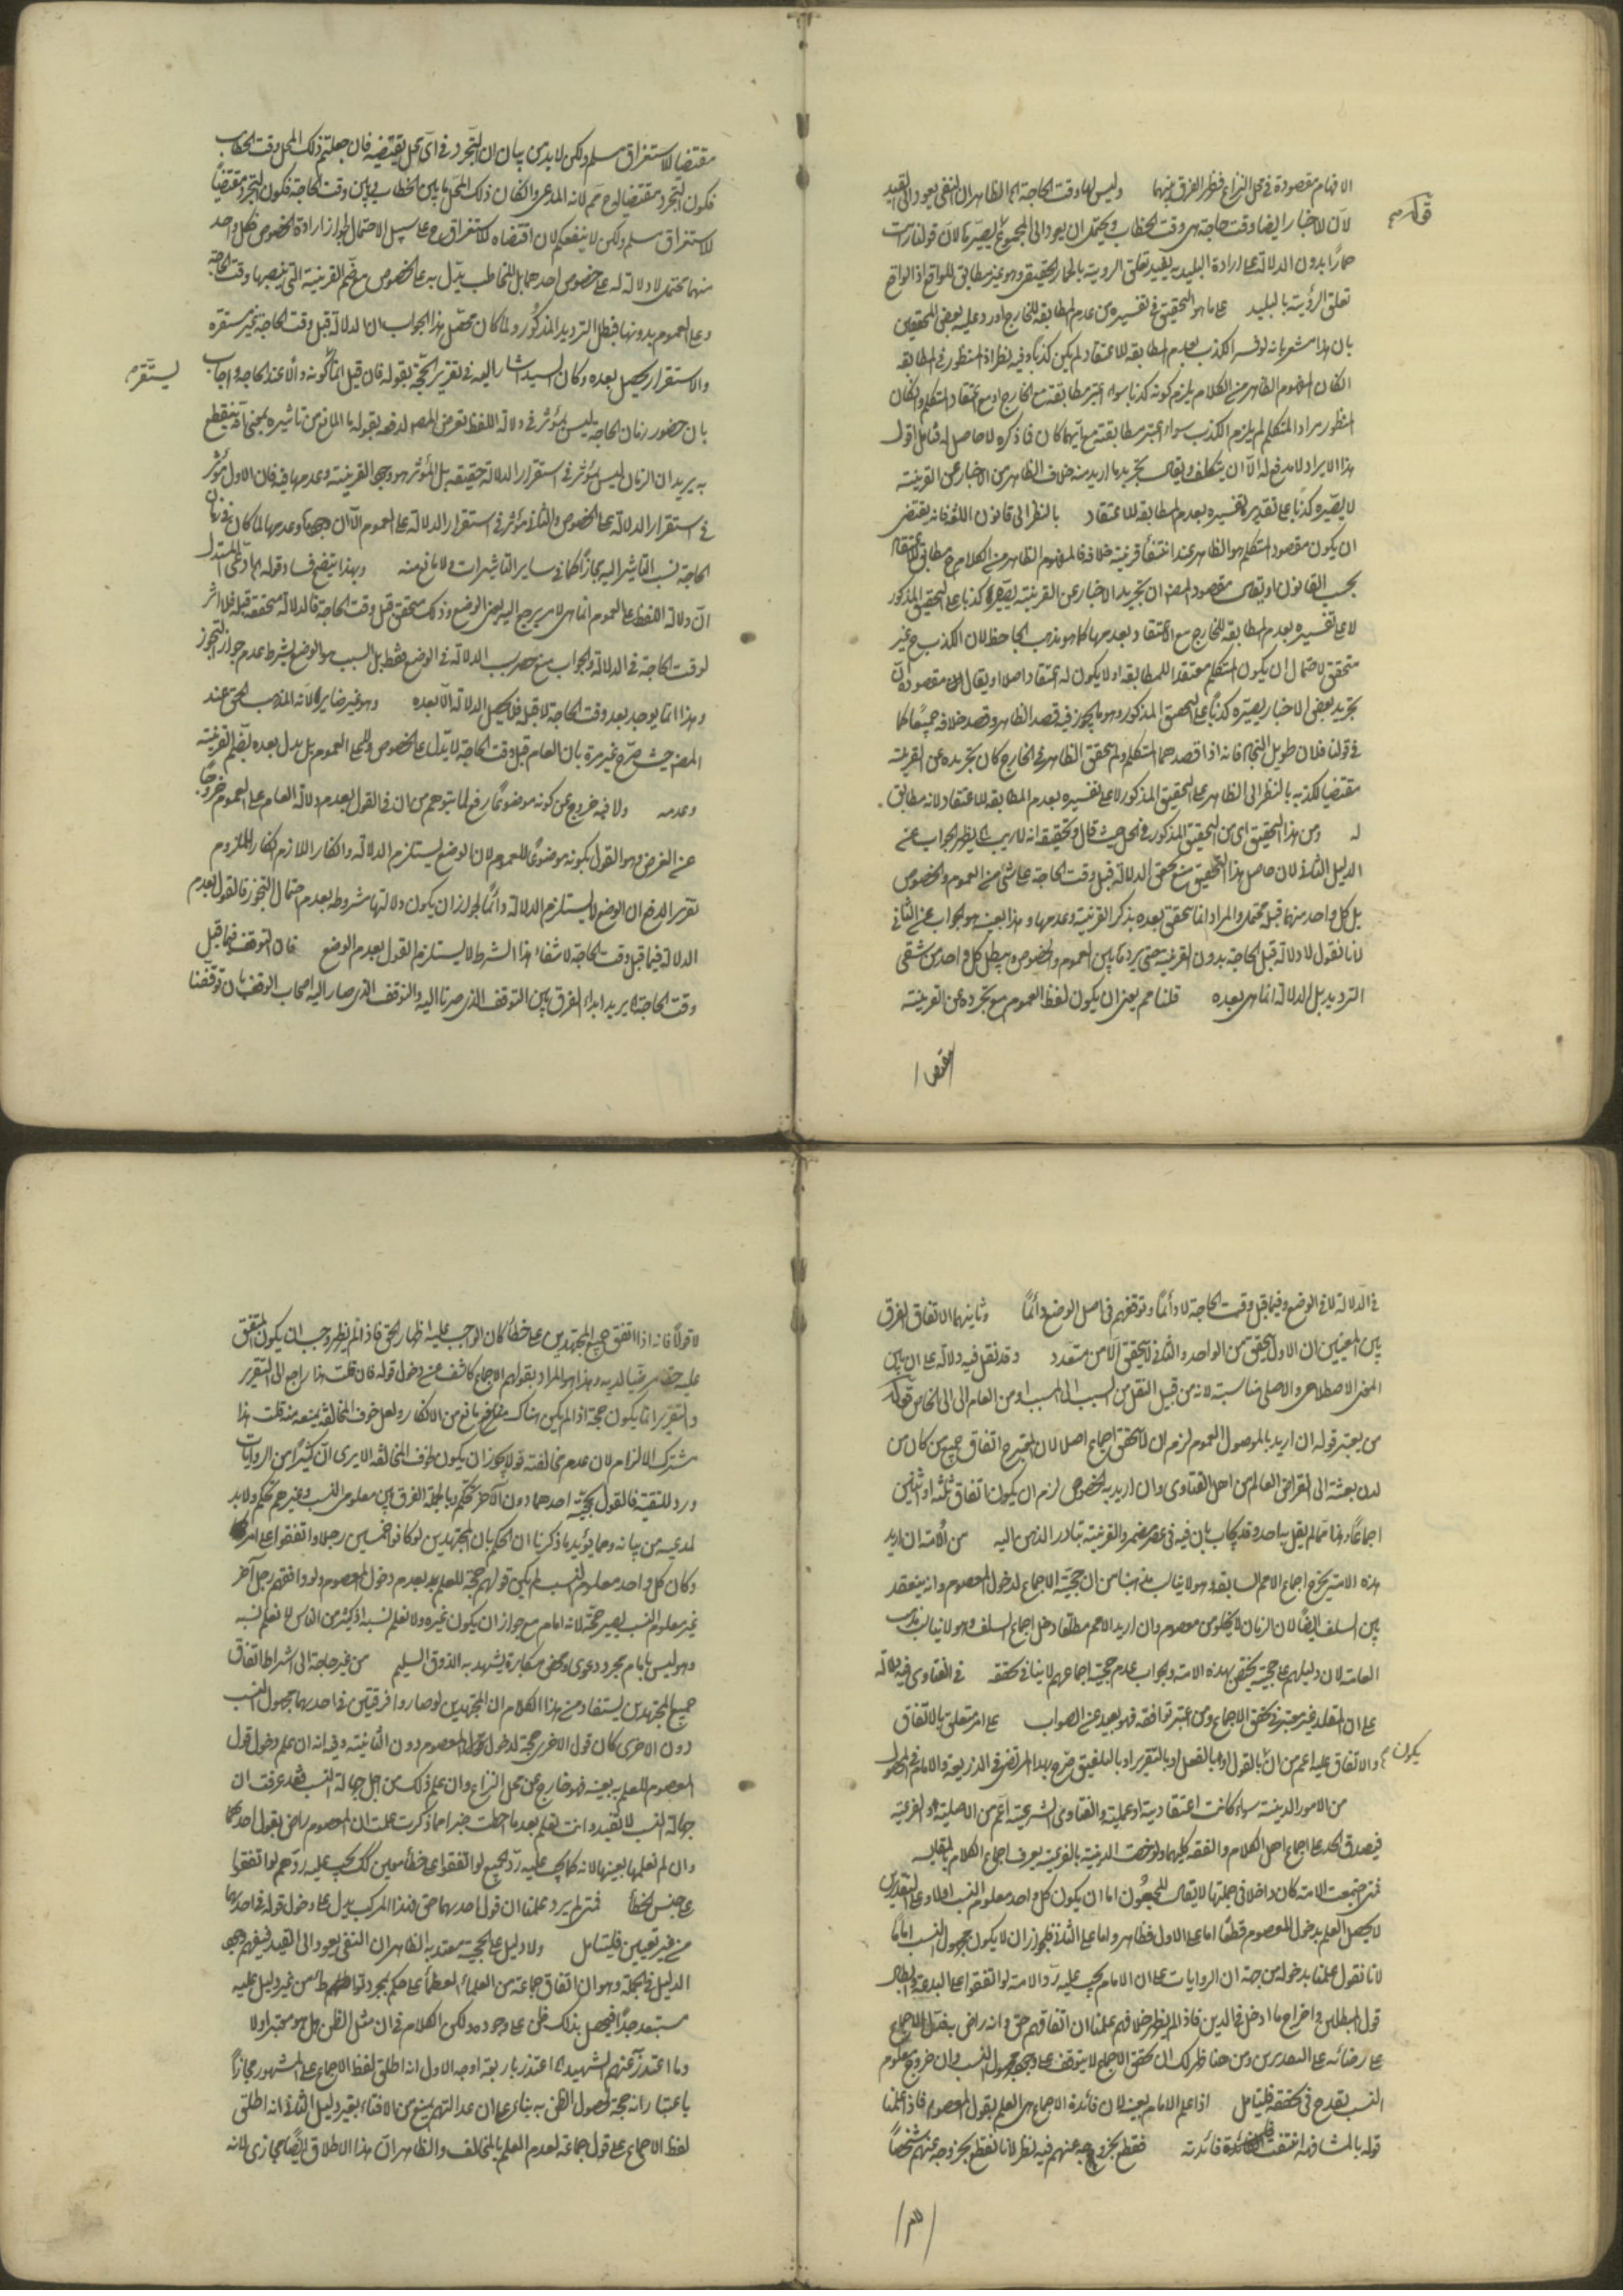 الافهام مقصودة في محل النزاع فظهر الفرق بينهما وليس لها وقت الحاجة الظاهر ان النفي يعود الى القيد
لان الاخبار ايضا وقت حاجته هي وقت الخطاب ويحتمل ان يعود الى المجموع يصيره لان قولنا رأيت
حمارا بدون الدلالة على ارادة البليد به يفيد تعلق الروية بالحمار الحقيقي وهو غير مطابق للواقع اذ الواقع
تعلق الرؤية بالبليد على ما هو التحقيق في تفسيره من عدم المطابقة للخارج اورد عليه بعض المحققين
بان هذا مشعر بانه لو فسر الكذب بعدم المطابقة للاعتقاد لم يكن كذبا وفيه نظر اذ المنظور في المطابقة
ان كان المفهوم الظاهر من الكلام يلزم كونه كذبا سواء اعتبر مطابقته مع الخارج او مع اعتقاد المتكلم وان كان
المنظور مراد المتكلم لم يلزم الكذب سواء اعتبر مطابقته مع ايهما كان فما ذكره لا حاصل له فتأمل اقول
هذا الايراد لا مدفع له الا ان يتكلف ويقال تجريد ما اريد منه خلاف الظاهر من الاخبار عن القرينة
لا يصيره كذبا على تقدير تفسيره بعدم المطابقة للاعتقاد بالنظر الى قانون اللغة فانه يقتضي
ان يكون مقصود المتكلم هو الظاهر عند انتفاء قرينة خلافه فالمفهوم الظاهر من الكلام ح مطابق لاعتقاده
بحسب القانون او يقال مقصود المص ان تجريد الاخبار عن القرينة يصيره كذبا على التحقيق المذكور
لا على تفسيره بعدم المطابقة للخارج مع الاعتقاد بعدمها كما هو مذهب الجاحظ لان الكذب ح غير
متحقق لاحتمال ان يكون المتكلم معتقدا للمطابقة او لا يكون له اعتقاد اصلا او يقال مقصوده ان
تجريد بعض الاخبار يصيره كذبا على التحقيق المذكور وهو ما يجوز فيه قصد الظاهر وقصد خلافه جميعا كما
في قولنا فلان طويل النجاد فانه اذا قصدهما المتكلم ولم يتحقق الظاهر في الخارج كان تجريده عن القرينة
مقتضيا لكذبه بالنظر الى الظاهر على التحقيق المذكور لا على تفسيره بعدم المطابقة للاعتقاد لانه مطابق
له ومن هذا التحقيق اي من التحقيق المذكور في الحل حيث قال وتحقيقه انه لا ريب يظهر الجواب عن
الدليل الثاني لان حاصل هذا التحقيق منع تحقق الدلالة قبل وقت الحاجة على شيء من العموم والخصوص
بل كل واحد منهما قبله محتمل والمراد انما يتحقق بعده بذكر القرينة وعدمها وهذا بعينه هو الجواب عن الثاني
لانا نقول لا دلالة قبل الحاجة بدون القرينة حتى يرد ما بين العموم والخصوص ويبطل كل واحد من شقي
الترديد بل الدلالة انما هي بعده قلنا مم يعني ان يكون لفظ العموم مع تجرده عن القرينة
مقتضيا
مقتضيا للاستغراق مسلم ولكن لا بد من بيان ان التجرد في اي محل يقتضيه فان جعلتم ذلك المحل وقت الخطاب
فكون التجرد مقتضيا له ح مم لانه المدعى وان كان ذلك المحل ما بين الخطاب وبين وقت الحاجة فكون التجرد مقتضيا
للاستغراق مسلم ولكن لا ينفعكم لان اقتضاه للاستغراق ح على سبيل الاحتمال لجواز ارادة الخصوص فكل واحد
منهما محتمل لا دلالة له على خصوص احدهما بل المخاطب يستدل به على الخصوص مع ضم القرينة التي ينصبها وقت الحاجة
وعلى العموم بدونها فبطل الترديد المذكور ولما كان محصل هذا الجواب ان الدلالة قبل وقت الحاجة غير مستقرة
والاستقرار يحصل بعده وكان السيد اشار اليه في تقرير الحجة بقوله فان قيل انما كونه دالا عند الحاجة واجاب
يستقر
بان حضور زمان الحاجة ليس بمؤثر في دلالة اللفظ تعرض المص لدفعه بقوله ما المانع من تاثيره بمعنى انه ينقطع
به يريد ان الزمان ليس بمؤثر في استقرار الدلالة حقيقة بل المؤثر هو وجود القرينة وعدمها فيه فان الاول مؤثر
في استقرار الدلالة على الخصوص والثاني مؤثر في استقرار الدلالة على العموم الا ان وجودها وعدمها لما كان في زمان
الحاجة نسب التاثير اليه مجازا كما في ساير التاثيرات ولا مانع منه وبهذا يتضح فساد قوله ادعى المستدل
ان دلالة اللفظ على العموم انما هي لامر يرجع اليه يعني الوضع وذلك متحقق قبل وقت الحاجة فالدلالة متحققة قبله فلا اثر
لوقت الحاجة في الدلالة والجواب منع حصر سبب الدلالة في الوضع فقط بل السبب هو الوضع بشرط عدم جواز التجوز
وهذا انما يوجد بعد وقت الحاجة لا قبله فلا يحصل الدلالة الا بعده وهو غير ضاير لانه المذهب الحق عند
المص حيث صرح غير مرة بان العام قبل وقت الحاجة لا يدل على الخصوص ولا على العموم بل يدل بعده بضم القرينة
وعدمه ولا فيه خروج عن كونه موضوعا رفع لما يتوهم من ان في القول بعدم دلالة العام على العموم خروجا
عن الفرض وهو القول بكونه موضوعا للعموم لان الوضع يستلزم الدلالة وانكار اللازم انكار الملزوم
تقرير الدفع ان الوضع لا يستلزم الدلالة دائما لجواز ان يكون دلالتها مشروطة بعدم احتمال التجوز فالقول بعدم
الدلالة فيما قبل وقت الحاجة لانتفاء هذا الشرط لا يستلزم القول بعدم الوضع فان التوقف فيما قبل
وقت الحاجة يريد ابداء الفرق بين التوقف الذي صرنا اليه والتوقف الذي صار اليه اصحاب الوقف بان توقفنا
في الدلالة لا في الوضع وفيما قبل وقت الحاجة لا دائما وتوقفهم في اصل الوضع دائما وثانيهما الاتفاق الفرق
بين المعنيين ان الاول يتحقق من الواحد والثاني لا يتحقق الا من متعدد وقد نقل فيه دلالة على ان بين
المعنى الاصطلاحي والاصلي مناسبة لانه من قبيل النقل من السبب الى المسبب او من العام الى الخاص
من يعتبر قوله ان اريد بالموصول العموم لزم ان لا يتحقق اجماع اصلا لان المعتبر ح اتفاق جميع من كان من
لدن بعثته الى انقراض العالم من اهل الفتاوى وان اريد به الخصوص لزم ان يكون اتفاق ثلثة او اثنين
اجماعا وهذا مما لم يقل به احد وقد يجاب بان فيه في عصر مضمر والقرينة تبادر الذهن اليه من الامة ان اريد
هذه الامة يخرج اجماع الامم السابقة وهو لا يناسب مذهبنا من ان حجية الاجماع لدخول المعصوم وانه ينعقد
بين السلف ايضا لان الزمان لا يخلو من معصوم وان اريد الامم مطلقا دخل اجماع السلف وهو لا يناسب مذهب
العامة لان دليلهم على حجيته يختص بهذه الامة والجواب عدم حجية اجماعهم لا ينافي تحققه في الفتاوى فيه دلالة
على ان المقلد غير معتبر في تحقق الاجماع ومن اعتبر توافقه فهو بعيد عن الصواب على امر متعلق بالاتفاق
والاتفاق عليه اعم من ان يكون بالقول او بالفعل او بالتقرير او بالتلفيق صرح بهذا المرتضى في الذريعة والامام في المحصول
من الامور الدينية سواء كانت اعتقادية او عملية والفتاوى الشرعية اعم من الاصلية او الفرعية
فيصدق الحد على اجماع اهل الكلام والفقه كليهما ولو خصت الدينية بالفرعية يعرف اجماع الكلام بالمقايسة
فمتى اجتمعت الامة كان داخلا في جملتها لا يقال المجمعون اما ان يكون كل واحد معلوم النسب او لا وعلى التقديرين
لا يحصل العلم بدخول المعصوم قطعا اما على الاول فظاهر واما على الثاني فلجواز ان لا يكون مجهول النسب اماما
لانا نقول علمنا بدخوله من جهة ان الروايات على ان الامام يجب عليه رد الامة لو اتفقوا على البدعة وابطال
قول المبطلين واخراج ما ادخل في الدين فاذا لم يظهر خلافهم علمنا ان اتفاقهم حق وانه راض بقول الاجماع
على رضائه على التقديرين ومن هنا ظهر لك ان تحقق الاجماع لا يتوقف على وجود مجهول النسب وان خروج معلوم
النسب يقدح في تحققه فليتأمل اذا علم الامام بعينه لان فائدة الاجماع هي العلم بقول المعصوم فاذا علمنا
قوله بالمشافهة انتفت فائدته فقطع بخروجه عنهم فيه نظر لانا نقطع بخروجه عنهم شخصا
لا قولا فانه اذا اتفق جميع المجتهدين على خطأ كان الواجب عليه اظهار الحق فاذا لم يظهر وجب ان يكون المتفق
عليه حقا مرضيا لديه وهذا هو المراد بقولهم الاجماع كاشف عن دخول قوله فان قلت هذا راجع الى التقرير
والتقرير انما يكون حجة اذا لم يكن هناك مانع من الانكار ولعل خوف المخالفة يمنعه منه قلت هذا
مشترك الالزام لان عدم مخالفته قولا يجوز ان يكون لخوف المخالفة الا يرى ان كثيرا من الروايات
ورد للتقية فالقول بحجية احدهما دون الآخر تحكم وبالجملة الفرق بين معلوم النسب وغيرهم تحكم ولا بد
لمدعيه من بيانه ومما يؤيد ما ذكرنا ان الحكم بان المجتهدين لو كانوا خمسين رجلا واتفقوا على امر
وكان كل واحد معلوم النسب لم يكن قولهم حجة للعلم بعدم دخول المعصوم ولو وافقهم رجل آخر
غير معلوم النسب يصير حجة لانه امام مع جواز ان يكون غيره ولا نعلم نسبه اذ كثير من الناس لا نعلم نسبه
وهو ليس بامام مجرد دعوى ومحض مكابرة يشهد به الذوق السليم من غير حاجة الى اشتراط اتفاق
جميع المجتهدين يستفاد من هذا الكلام ان المجتهدين لو صاروا فرقتين في احديهما مجهول النسب
دون الاخرى كان قول الاخرى حجة لدخول قول المعصوم دون الثانية وفيه انه ان علم دخول قول
المعصوم للعلم به بعينه فهو خارج عن محل النزاع وان علم ذلك من اجل جهالة النسب فقد عرفت ان
جهالة النسب لا تفيد وانت تعلم بعد ما احطت خبرا بما ذكرت علمت ان المعصوم راض بقول احدهما
وان لم نعلمها بعينها لانه كما يجب عليه رد الجميع لو اتفقوا على خطأ معين كك يجب عليه ردهم لو اتفقوا
على جنس الخطأ فمتى لم يرد علمنا ان قول احديهما حق فهذا المركب يدل على دخول قوله في احديهما
من غير تعيين فليتأمل ولا دليل على الحجية معتد به الظاهر ان النفي يعود الى القيد فيفهم وجود
الدليل في الجملة وهو ان اتفاق جماعة من العلماء العظماء على حكم بمجرد تواطئهم من غير دليل عليه
مستبعد جدا فيحصل بذلك ظن على وجوده ولكن الكلام في ان مثل الظن هل هو معتبر او لا
وما اعتذر عنهم الشهيد اعتذر باربعة اوجه الاول انه اطلق لفظ الاجماع على المشهور مجازا
باعتبار انه حجة لحصول الظن به بناء على ان عدالتهم يمنع من الافتاء بغير دليل الثاني انه اطلق
لفظ الاجماع على قول جماعة لعدم العلم بالمخالف والظاهر ان هذا الاطلاق ايضا مجازي لانه